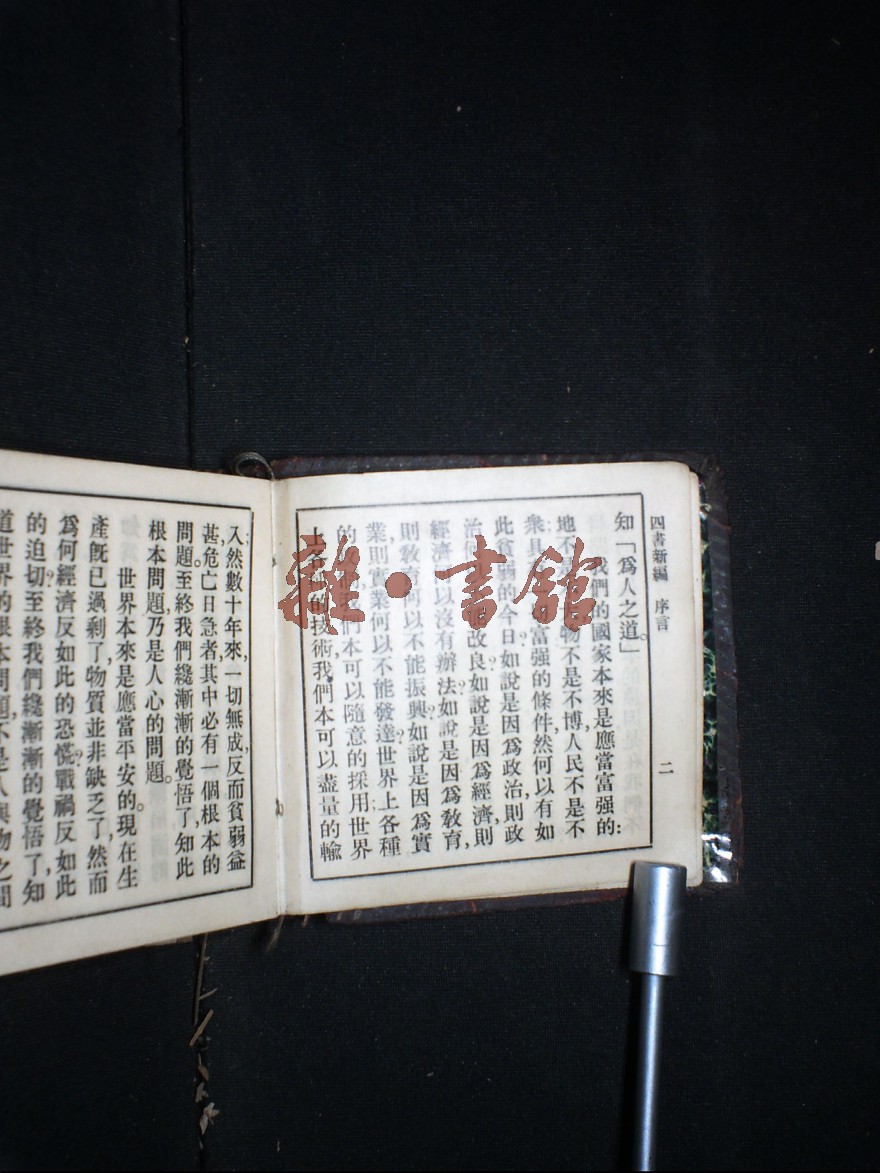 四書新編 序言 二
知「爲人之道。」
我們的國家本來是應當富强的:
地不是不 物不是不博,人民不是不
衆,具 富强的條件,然何以有如
此貧弱的今日?如說是因爲政治,則政
治何 改良?如說是因爲經濟,則
經濟 以沒有辦法?如說是因爲敎育,
則敎育何以不能振興?如說是因爲實
業,則實業何以不能發達?世界上各種
的 們本可以隨意的採用;世界
上各種的技術,我們本可以盡量的輸
入;然數十年來,一切無成,反而貧弱益
甚,危亡日急者,其中必有一個根本的
問題。至終我們纔漸漸的覺悟了,知此
根本問題,乃是人心的問題。
世界本來是應當平安的。現在生
產旣已過剩了,物質並非缺乏了,然而
爲何經濟反如此的恐慌?戰禍反如此
的迫切?至終我們纔漸漸的覺悟了,知
道世界的根本問題,不是人與物之間
雜·書館